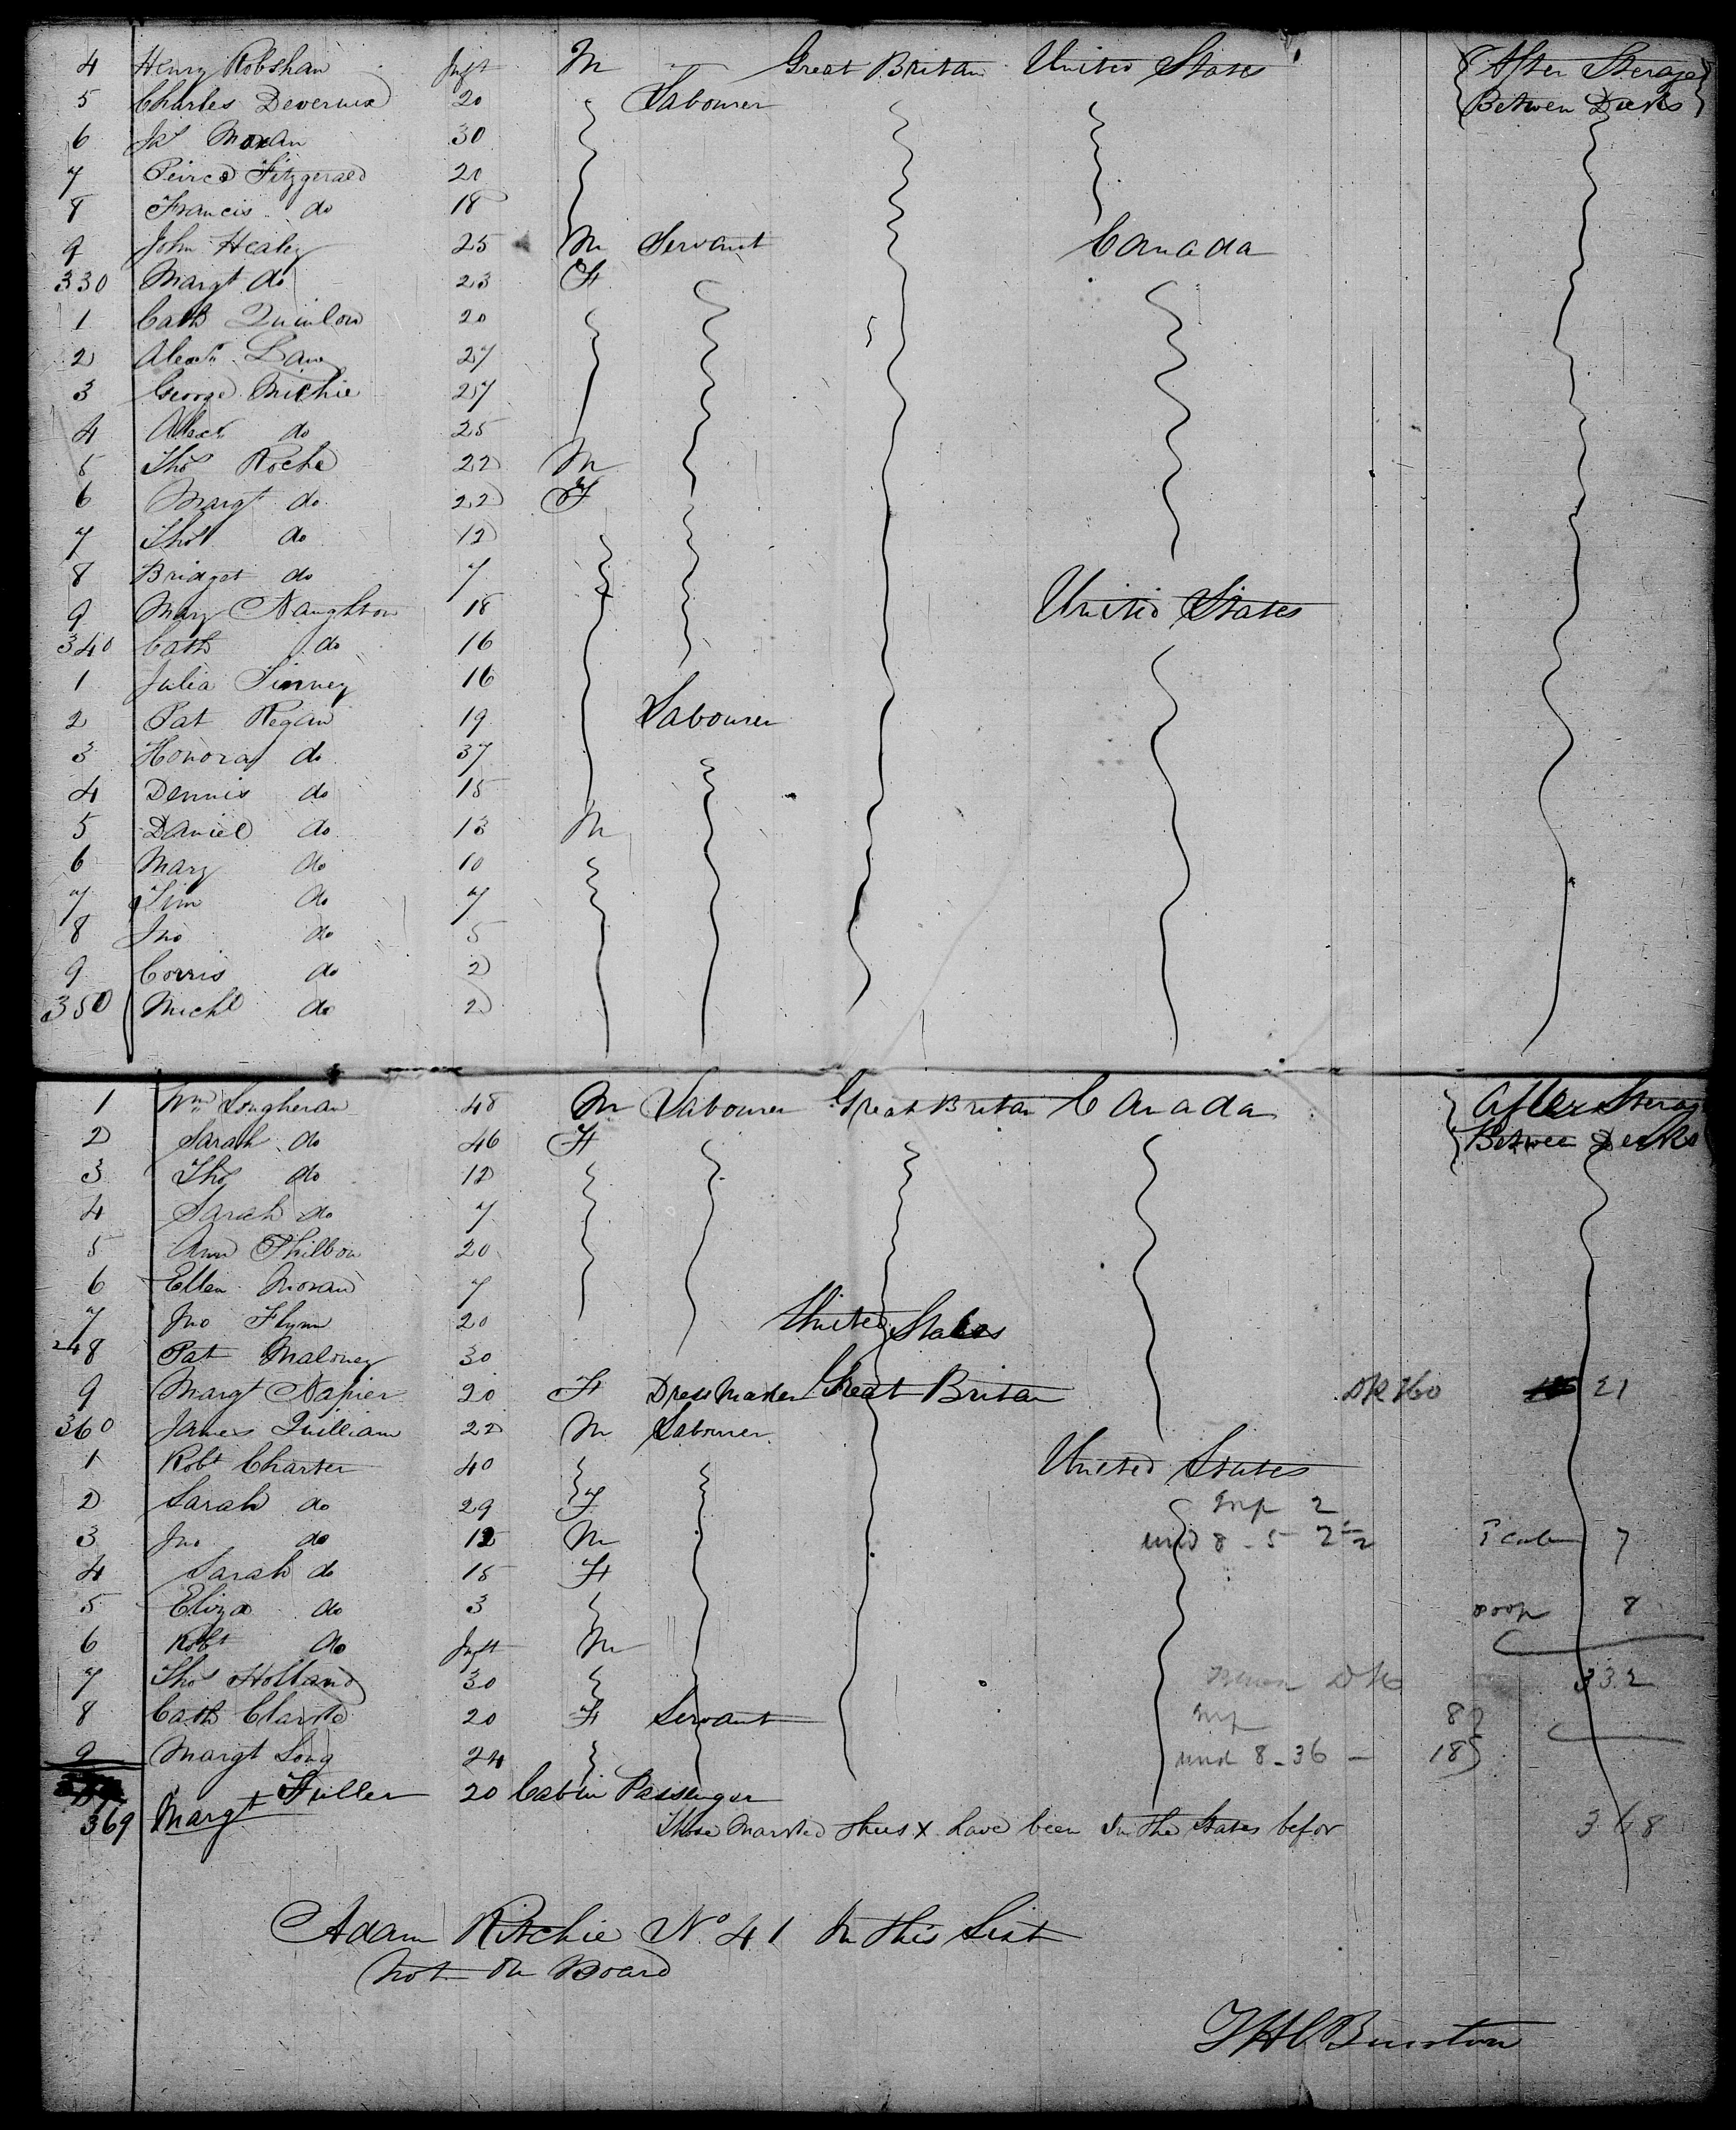 4 Henry Robshaw Inft M Great Britain United States After Sterage
5 Charles Devereux 20 Labourer Between Decks
6 Js Moran 30
7 Peirce Fitzgerald 20
8 Francis do 18
9 John Healy 25 M Servant Canada
330 Margt do 23 F
1 Cath Quinlow 20
2 Alexr Law 27
3 George Michie 27
4 Alexr do 25
5 Thos Roche 22 M
6 Margt do 22 F
7 Thos do 12
8 Bridget do 7
9 Mary Naughton 18 United States
340 Cath do 16
1 Julia Finney 16
2 Pat Regan 19 Labourer
3 Honora do 37
4 Dennis do 15
5 Daniel do 13 M
6 Mary do 10
7 Tim do 7
8 Jno do 5
9 Corris do 2
350 Michl do 2
1 Wm Lougheran 48 M Labourer Great Britain Canada After Sterag
2 Sarah do 46 F Betwee Decks
3 Thos do 12
4 Sarah do 7
5 Ann Philbon 20
6 Ellen Moran 7
7 Jno Flynn 20 United States
248 Pat Maloney 30
9 Margt Napier 20 F Dress Maker Great Britan 21
360 James Quilliam 22 M Labourer
1 Robt Charter 40 United States
2 Sarah do 29 F Inf 2
3 Jno do 12 M und 8 - 5 7
4 Sarah do 15 F
5 Eliza do 3 poop 8
6 Robt do Inft M
7 Thos Holland 30 332
8 Cath Clarke 20 F Servant Inf 8
9 Margt Long 24 und 8 - 36 - 18
369 Margt Fuller 20 Cabin Passenger
Those Marked thus x have been In the States befor 368
Adam Ritchie No 41 In this List
not On Board
T H C Burston